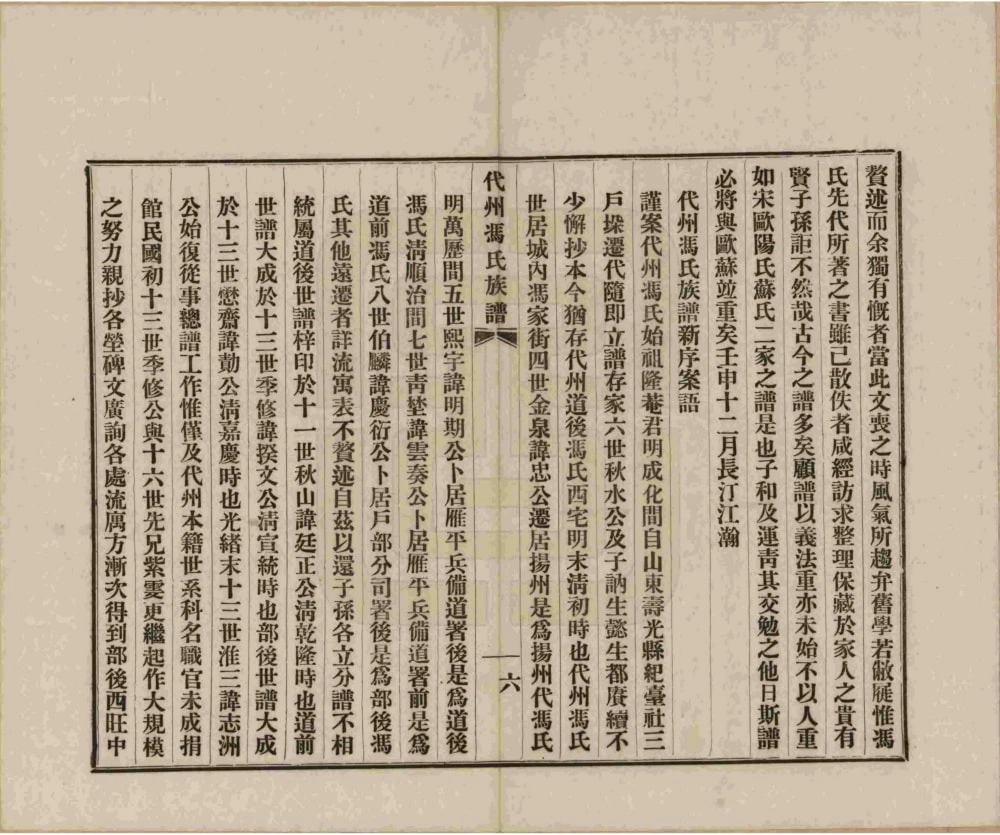 贅述而余獨有慨者當此文喪之時風氣所趨弁舊學若敝屣惟馮
氏先代所著之書雖已散佚者咸經訪求整理保藏於家人之貴有
賢子孫詎不然哉古今之譜多矣顧譜以義法重亦未始不以人重
如宋歐陽氏蘇氏二家之譜是也子和及運靑其交勉之他日斯譜
必將與歐蘇竝重矣壬申十二月長汀江瀚
代州馮氏族譜新序案語
謹案代州馮氏始祖隆菴君明成化間自山東壽光縣紀臺社三
戶垜遷代隨即立譜存家六世秋水公及子訥生懿生都賡續不
少懈抄本今猶存代州道後馮氏西宅明末淸初時也代州馮氏
世居城內馮家街四世金泉諱忠公遷居揚州是爲揚州代馮氏
代州馮氏族譜
六
明萬歷間五世熙宇諱明期公卜居雁平兵備道署後是爲道後
馮氏淸順治間七世靑埜諱雲奏公卜居雁平兵備道署前是爲
道前馮氏八世伯麟諱慶衍公卜居戶部分司署後是爲部後馮
氏其他遠遷者詳流寓表不贅述自茲以還子孫各立分譜不相
統屬道後世譜梓印於十一世秋山諱廷正公淸乾隆時也道前
世譜大成於十三世季修諱揆文公淸宣統時也部後世譜大成
於十三世懋齋諱勱公淸嘉慶時也光緒末十三世淮三諱志洲
公始復從事總譜工作惟僅及代州本籍世系科名職官未成捐
館民國初十三世季修公與十六世先兄紫雯更繼起作大規模
之努力親抄各塋碑文廣詢各處流寓方漸次得到部後西旺中